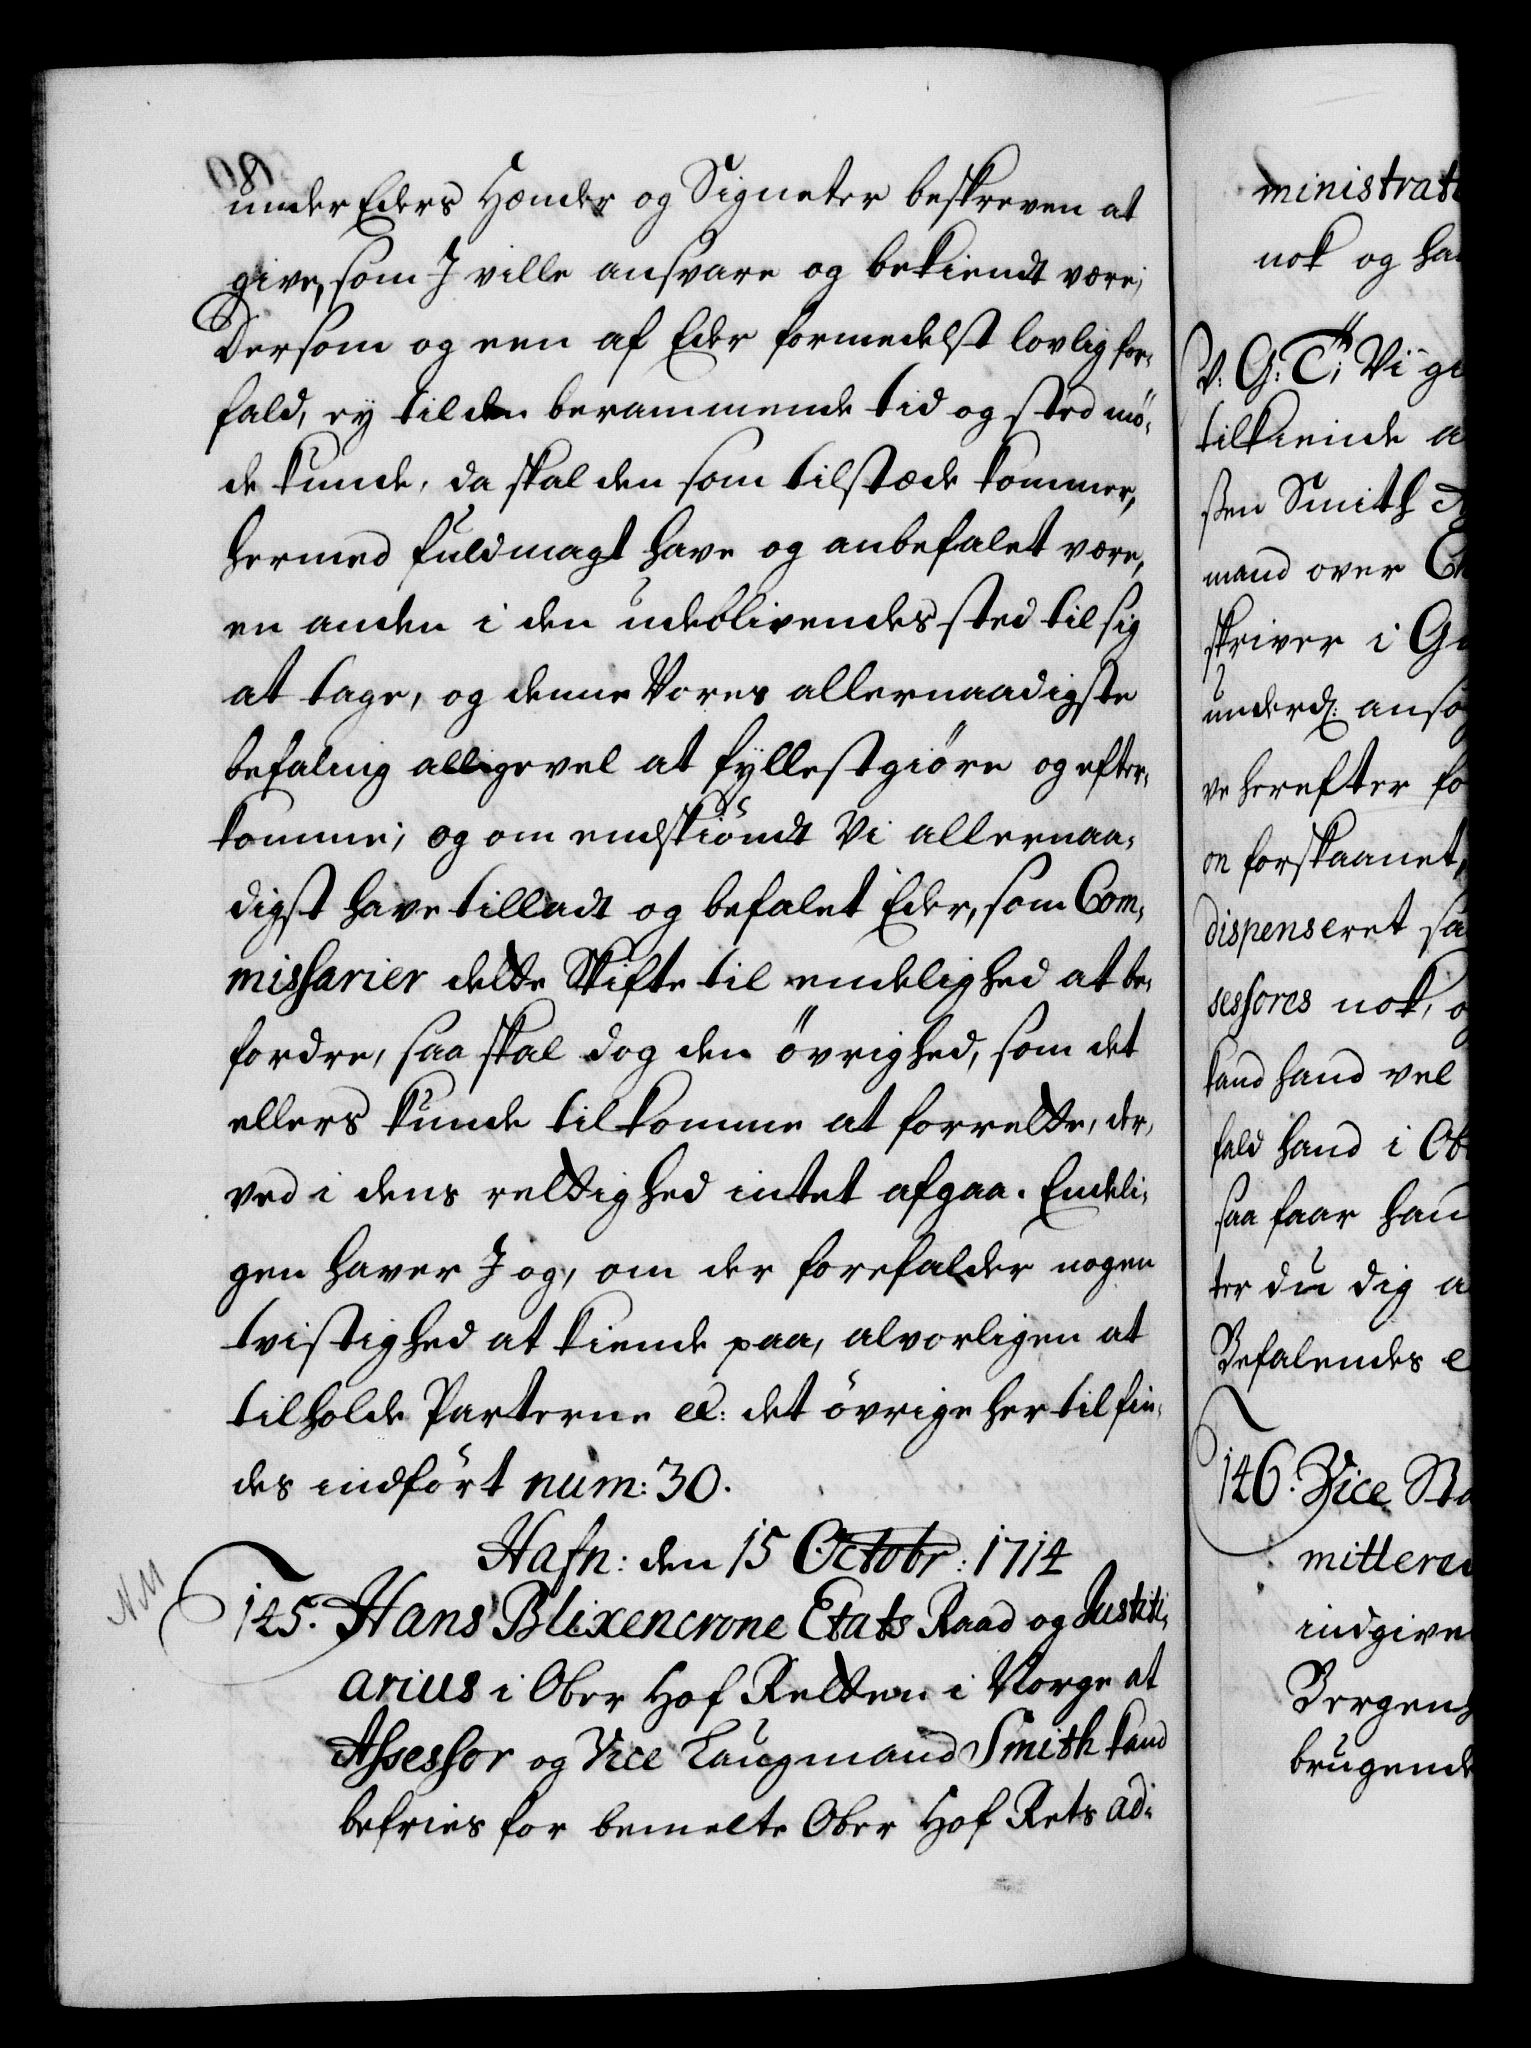 under Eders Hænder og Signeter beskreven at
give, som J ville ansvare og bekiendt være;
Dersom og een af Eder formedelst lovlig for-
fald, ey til den berammende tid og sted mö-
de kunde, da skal den som tilstæde kommer,
hermed fuldmagt have og anbefalet være,
en anden i den udeblivendes sted til sig
at tage, og denne Vores allernaadigste
befaling alligevel at fyllestgiöre og efter-
komme; og om endskiöndt Vi allernaa-
digst have tilladt og befalet Eder, som Com-
missarier dette Skifte til endelighed at be-
fordre, saa skal dog den övrighed, som det
ellers kunde tilkomme at forrette, der-
ved i dens rettighed intet afgaa. Endeli-
gen haver J og, om der forefalder nogen
tvistighed at kiende paa, alvorligen at
tilholde Parterne etc: det övrige her til fin-
des indfört num: 30.
Hafn: den 15 Octobr: 1714
NM
145. Hans Blixencrone Etats Raad og Justiti-
arius i Ober Hof Retten i Norge at
Assessor og Vice Laugmand Smith kand
befries for bemelte Ober Hof Rets ad-
ministrati
nok og ha
V: G: T: Vi gi
tilkiende a
ssen Smith
mand over
skriver i
underd: ansög
ve herefter fo
on forskaanet,
dispenseret sa
sessores nok, o
kand hand vel
fald hand i Ob
saa faar han
ter du dig a
Befalendes e
146. Vice Sta
mittered
indgive
Bergens
brugende